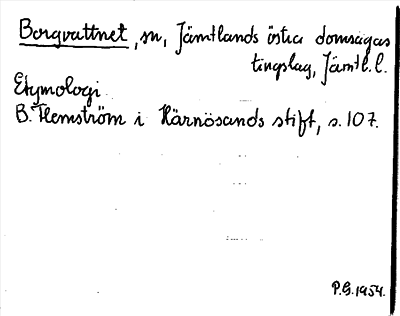 Borgvattnet, sn, Jämtlands östra domsagas
tingslag, Jämtl. l.
Etymologi
B. Flemström i Härnösands stift, s. 107.
P.G. 1954.